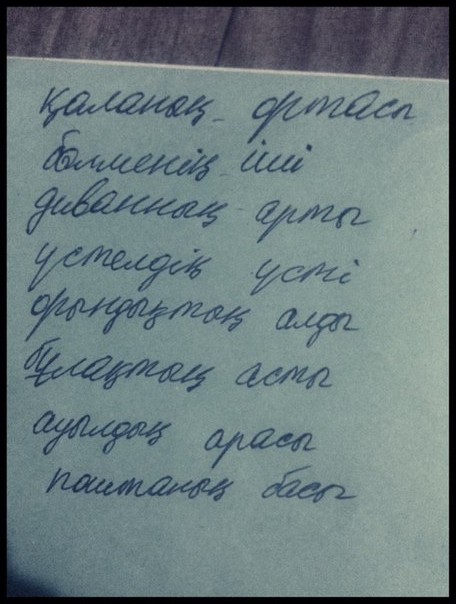 қаланың ортасы
бөлменің іші
диванның арты
үстелдің үсті
орындықтың алды
бұлақтың асты
ауылдың арасы
поштаның басы